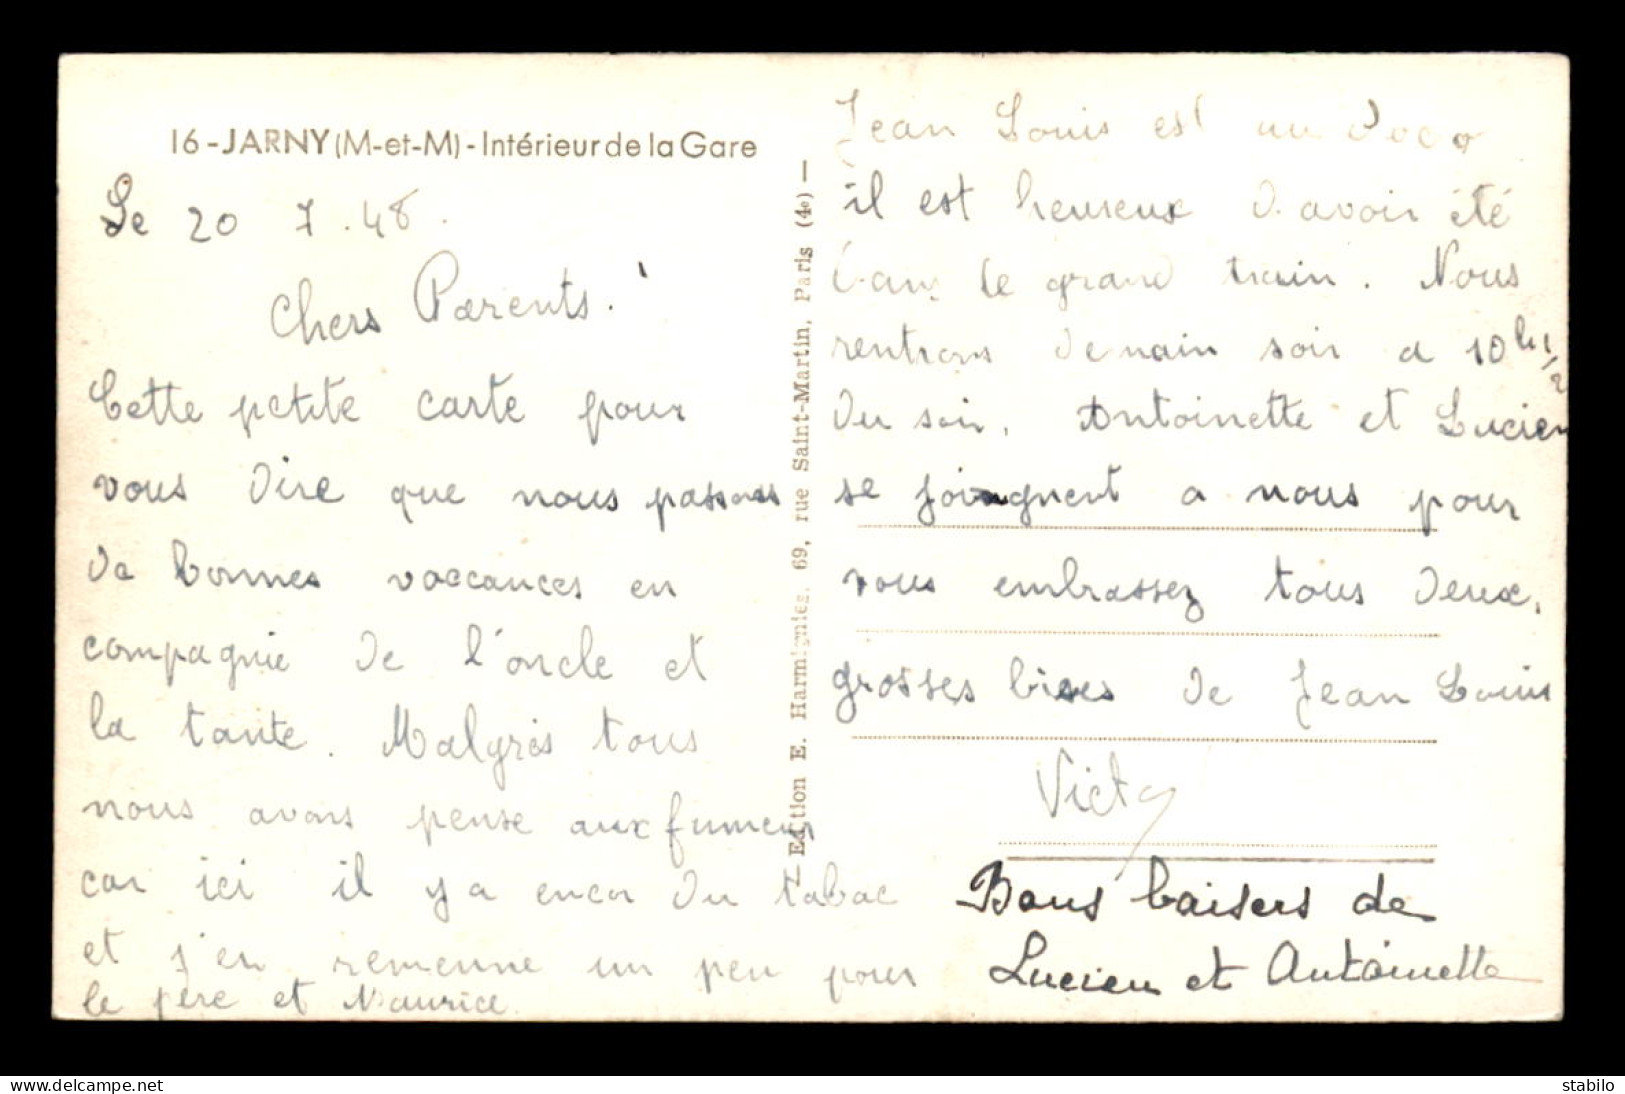 16 - JARNY (M-et-M) - Intérieur de la Gare
Le 20 7.48.
Chers Parents.
Cette petite carte pour
vous dire que nous passons
de bonnes vaccances en
compagnie de l'oncle et
la tante. Malgrès tous
nous avons pense aux fumeurs
car ici il y a encor du tabac
et j'en remenne un peu pour
le père et Maurice
— Edition E. Harmignies, 69, rue Saint-Martin, Paris (4e) —
Jean Louis est au
il est heureux d'avoir été
dans le grand train. Nous
rentrons demain soir a 10h 1/2
du soir. Antoinette et Lucien
se joingnent a nous pour
vous embrassez tous deux,
grosses bises de Jean Louis
Victor
Bons baisers de
Lucien et Antoinette
www.delcampe.net
stabilo